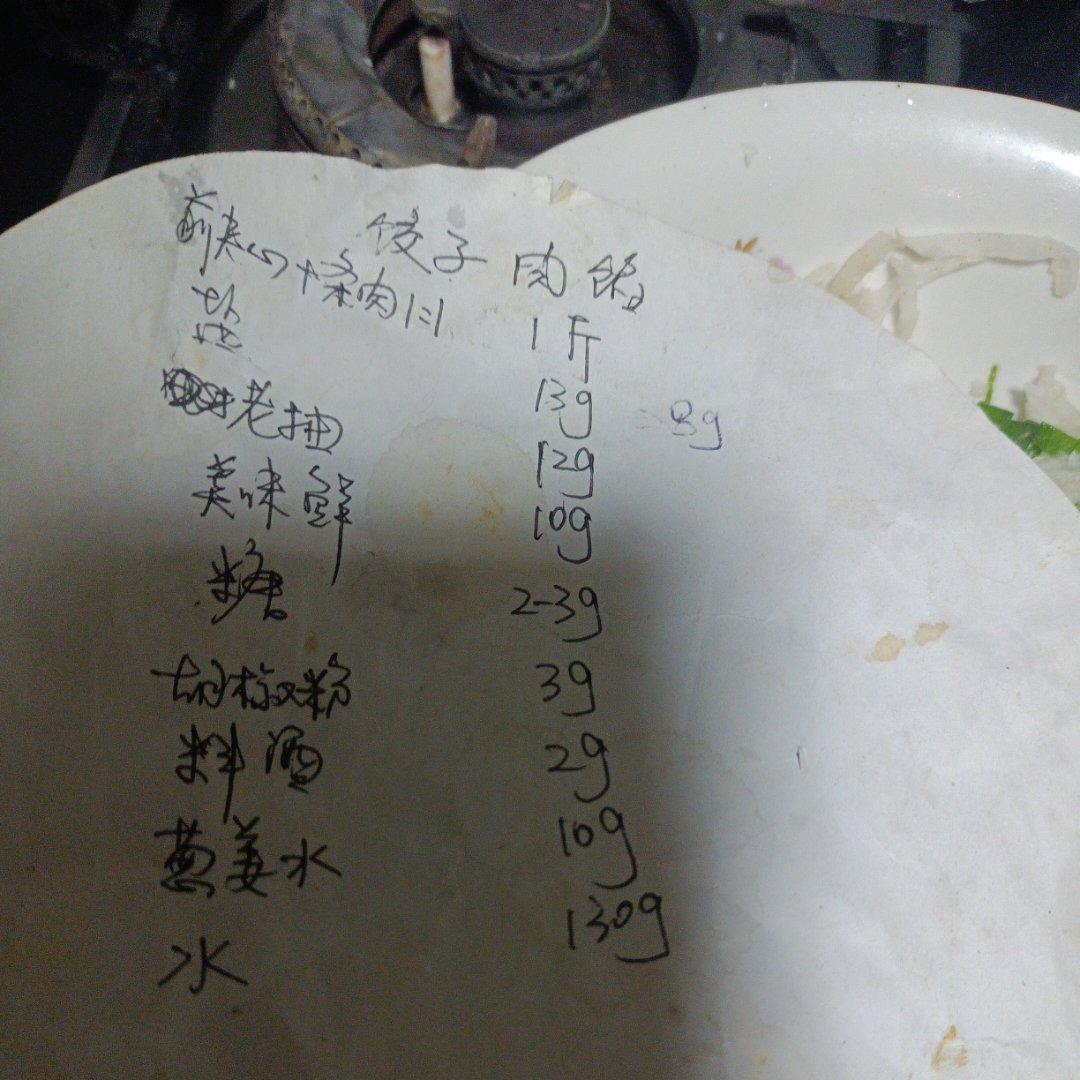 饺子 肉馅
前夹心+条肉1:1 1斤
盐 13g 8g
老抽 12g
美味鲜 10g
糖 2-3g
胡椒粉 3g
料酒 2g
葱姜水 10g
水 130g